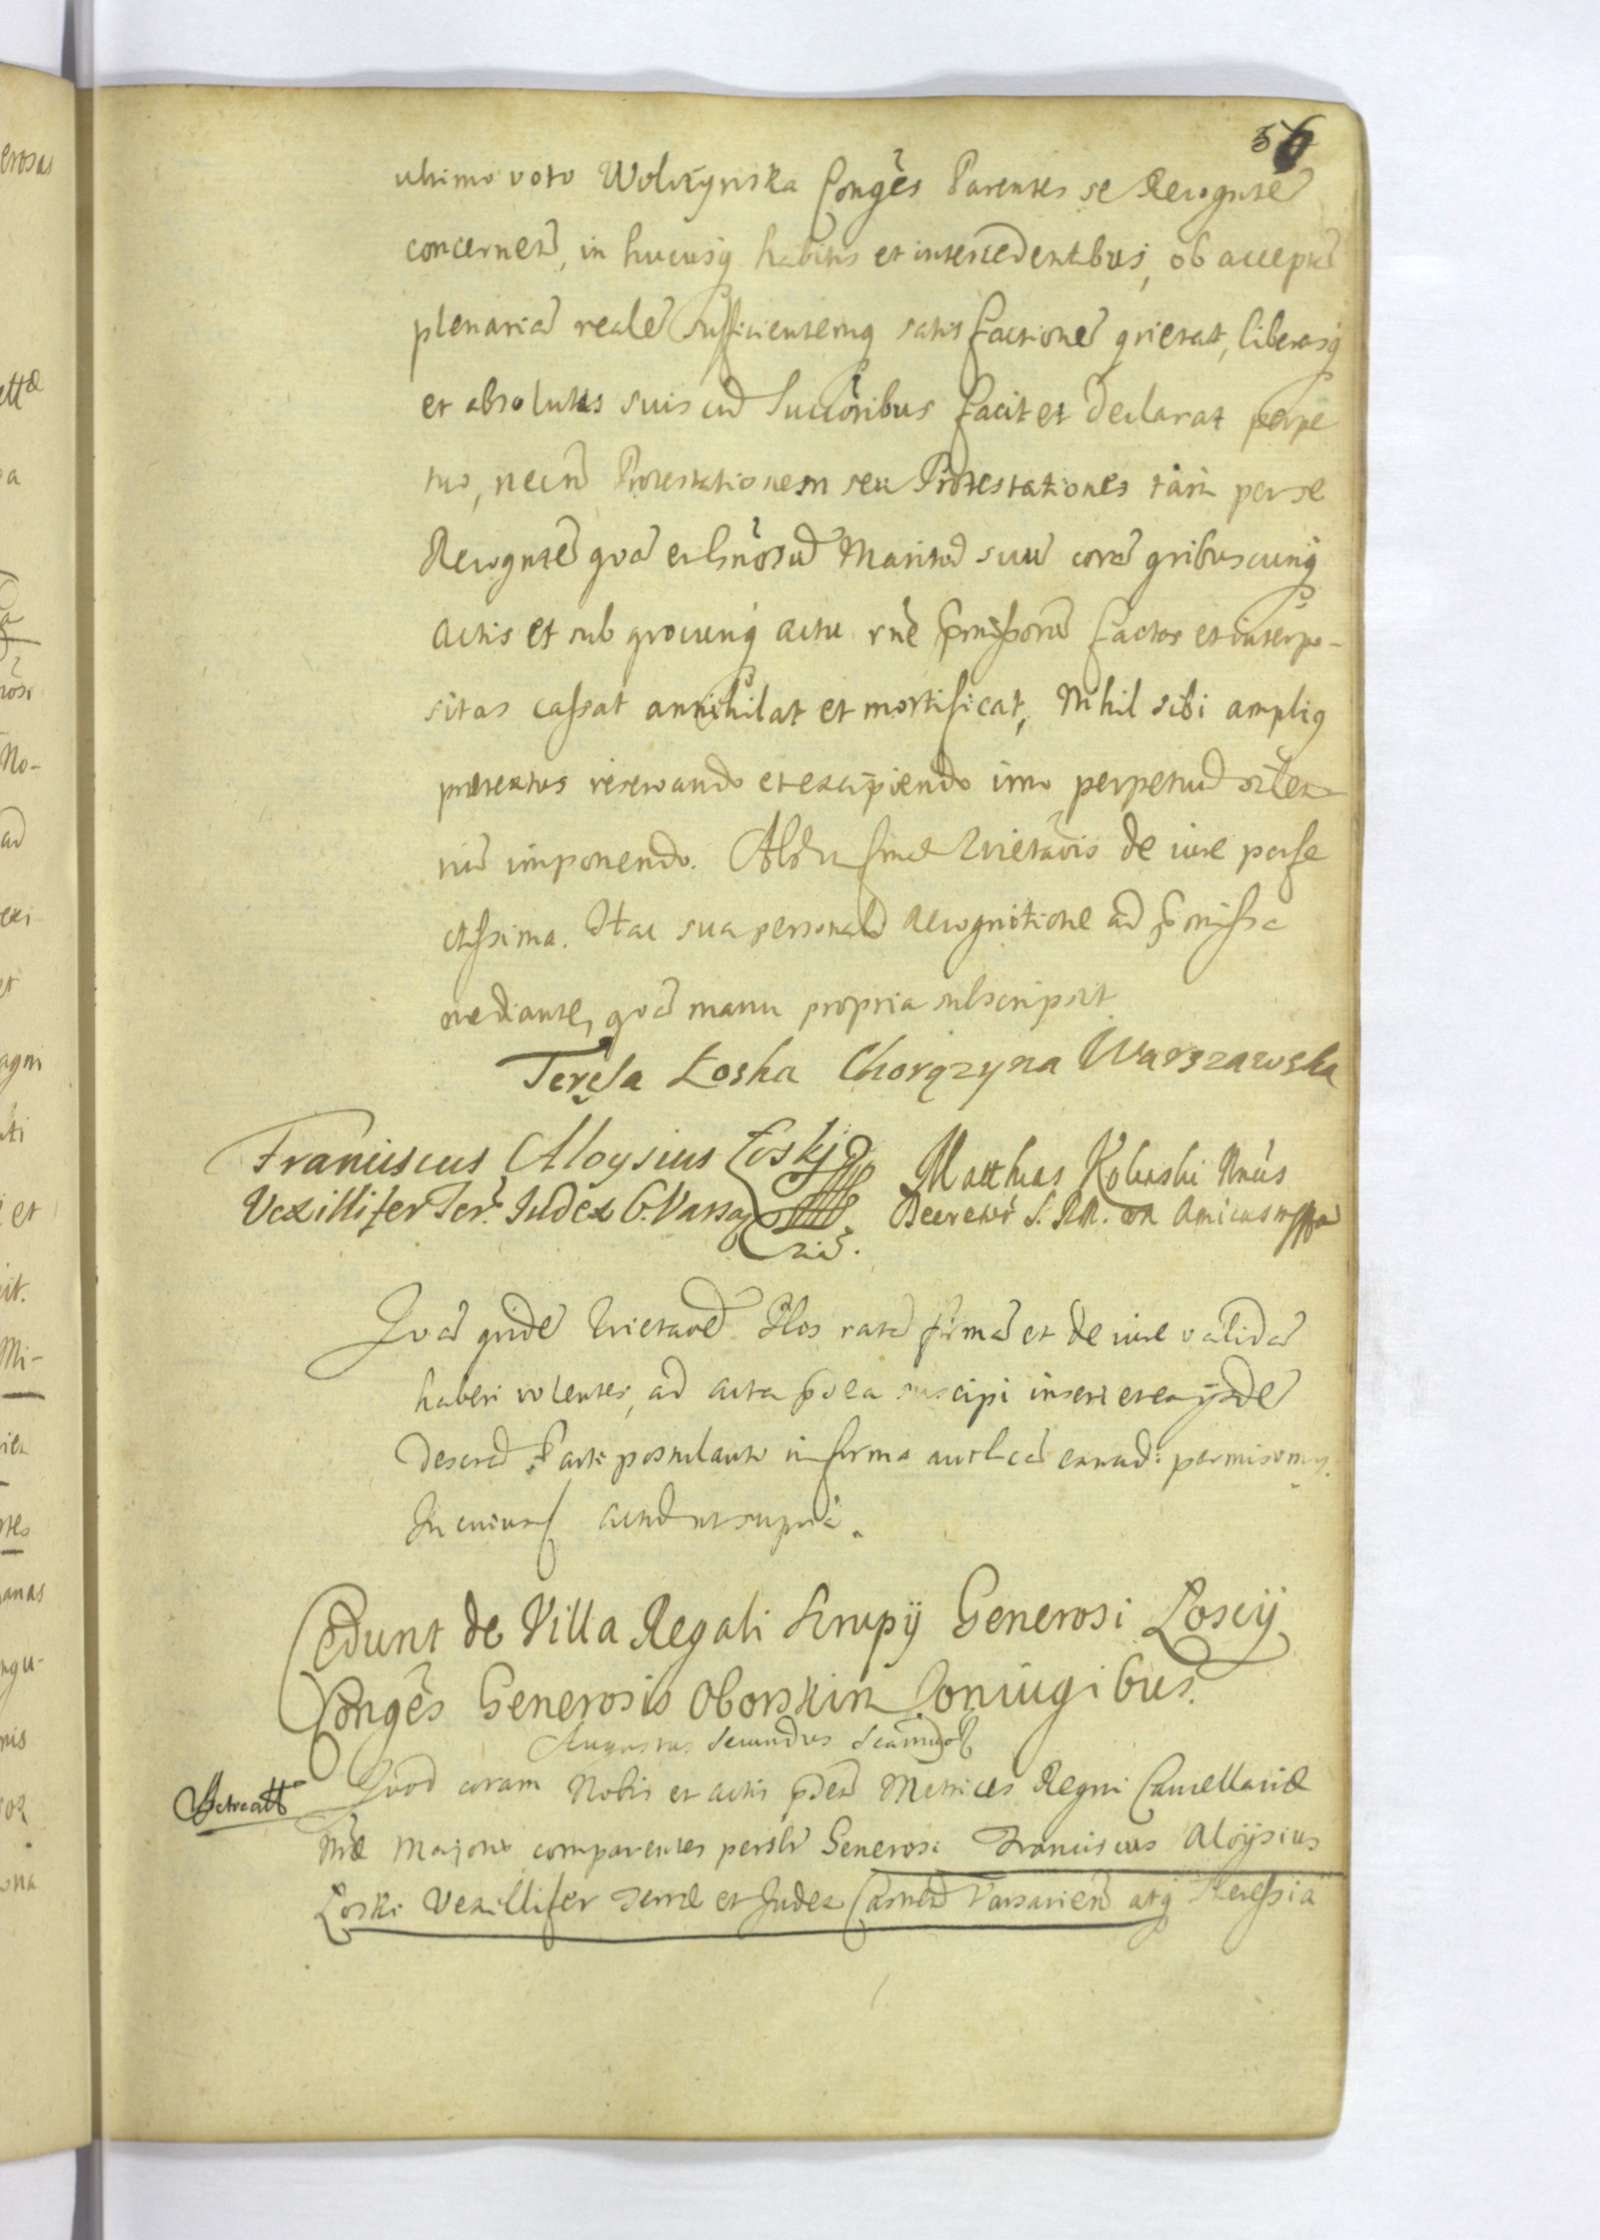 56
ultimo voto Wolczynska Congēs Parentes se Recognte
concernen, in hucusq habitis et intercedentibus, ob accepta
plenaria reale sufficientemq satis factione qrietat, liberosq
et absolutos suis cu Succoribus facit et declarat perpe
tuo, necn Protestationem seu Protestationes tam per se
Recognte qva et Gnosu Maritu suu cora qribuscunq
actis et sub qrocunq actu rne pmissoru factas et interpo-
sitas cassat annihilat et mortificat, Nihil sibi ampliq
pretextus reservando et excipiendo imo perpetuu silen
niu imponendo. de iure perfe
ctissima. Hac sua personali Recognitione ad pmissa
mediante, qva manu propria subscripsit
Teresa Łoska Chorązyna Warszawska
Franciscus Aloysius Łoskj
Vexillifer Ter. Iudex C. Varsa
Matthias Kolinski Nrius
Decretor S. R. M. Amicus mppa
Qva qride Qrietaoe Nos rata firma et de iure valida
haberi volentes, ad acta pnta suscipi inseri et ex ijsde
Parti postulanti in forma authca extrad: permisimus.
In cuius actu ut supra.
Cedunt de Villa Regali Krupij Generosi Loscij
Congēs Generosis Oborskim Coniugibus.
Augustus Secundus
Qvod coram Nobis et actis pnbs Metrices Regni Cancellariæ
Nræ Majoris comparentes persltr Generosi Franciscus Aloÿsius
Łoski Vexillifer Terræ et Judex Castren Varsavien atq Theressia